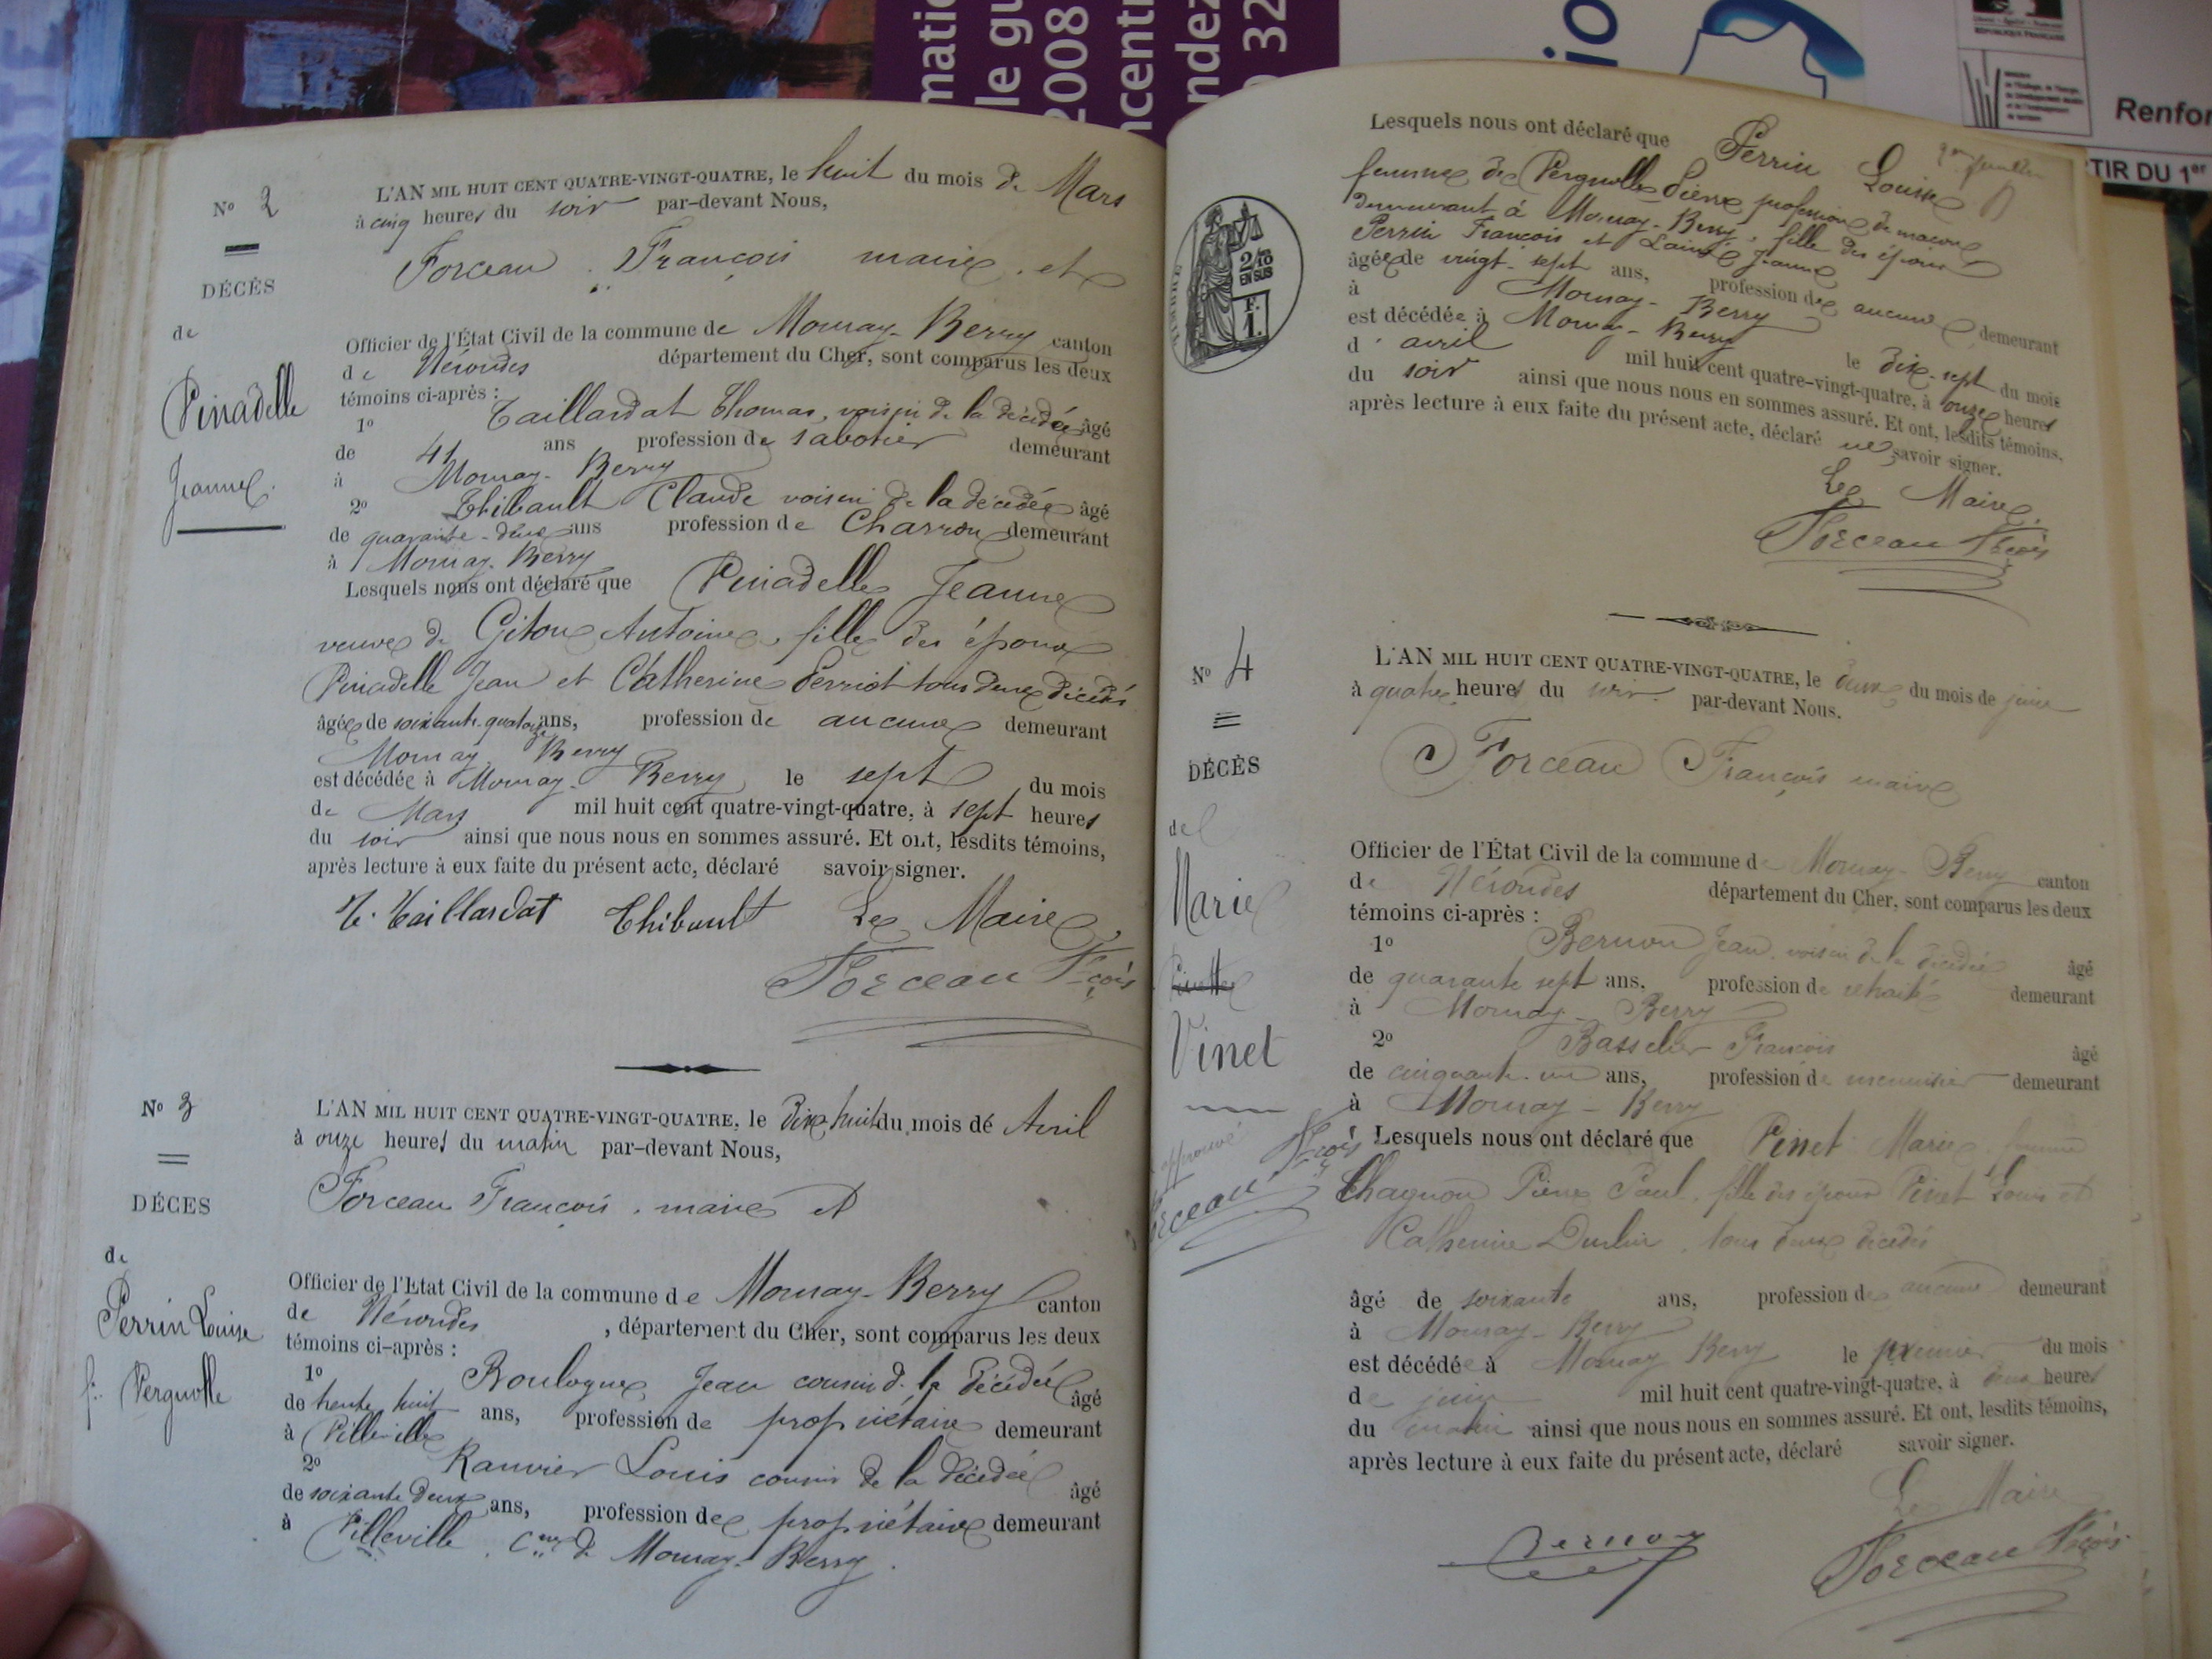 VENTE
matio
le gu
2008
ncentr
ndez
32
io
RÉPUBLIQUE FRANÇAISE
Renfor
TIR DU 1er
No 2
DÉCÈS
de
Pinadelle
Jeanne.
L'AN MIL HUIT CENT QUATRE-VINGT-QUATRE, le huit du mois de Mars
à cinq heures du soir par-devant Nous,
Forceau François maire et
Officier de l'État Civil de la commune de Mornay-Berry canton
de Nérondes département du Cher, sont comparus les deux
témoins ci-après :
1o Taillardat Thomas, voisin de la décédée âgé
de 41 ans profession de sabotier demeurant
à Mornay-Berry
2o Thibault Claude voisin de la décédée âgé
de quarante-deux ans profession de Charron demeurant
à Mornay-Berry
Lesquels nous ont déclaré que Pinadelle Jeanne
veuve de Giton Antoine, fille des époux
Pinadelle Jean et Catherine Perriot tous deux décédés
âgée de soixante-quatorze ans, profession de aucune demeurant
Mornay-Berry
est décédée à Mornay-Berry le sept du mois
de Mars mil huit cent quatre-vingt-quatre, à sept heures
du soir ainsi que nous nous en sommes assuré. Et ont, lesdits témoins,
après lecture à eux faite du présent acte, déclaré savoir signer.
T. Taillardat Thibault Le Maire,
Forceau Fçois
No 3
DÉCES
de
Perrin Louise
f. Pergnolle
L'AN MIL HUIT CENT QUATRE-VINGT-QUATRE, le Dix huit du mois dé Avril
à onze heures du matin par-devant Nous,
Forceau François, maire et
Officier de l'Etat Civil de la commune de Mornay-Berry canton
de Nérondes, département du Cher, sont comparus les deux
témoins ci-après :
1o Boulogne Jean cousin d. la décédée âgé
de trente huit ans, profession de propriétaire demeurant
à Pilleville
2o Ranvier Louis cousin de la décédée âgé
de soixante deux ans, profession de propriétaire demeurant
à Pilleville, Cne de Mornay-Berry.
Lesquels nous ont déclaré que Perrin Louise
femme de Pergnolle Pierre profession de maçon
demeurant à Mornay-Berry, fille des époux
Perrin François et Lainé Jeanne
âgée de vingt-sept ans, profession de aucune demeurant
à Mornay-Berry
est décédée à Mornay-Berry le dix-sept du mois
d'avril mil huit cent quatre-vingt-quatre, à onze heures
du soir ainsi que nous nous en sommes assuré. Et ont, lesdits témoins,
après lecture à eux faite du présent acte, déclaré ne savoir signer.
Le Maire,
Forceau Fçois
2/10
EN SUS
F.
1.
No 4
DÉCÈS
de
Marie
Vinet
approuvé
Forceau Fçois
L'AN MIL HUIT CENT QUATRE-VINGT-QUATRE, le deux du mois de juin
à quatre heures du soir par-devant Nous.
Forceau François maire
Officier de l'État Civil de la commune de Mornay-Berry canton
de Nérondes département du Cher, sont comparus les deux
témoins ci-après :
1o Bernon Jean, voisin de la décédée âgé
de quarante sept ans, profession de retraité demeurant
à Mornay-Berry
2o Basselier François âgé
de cinquante-un ans, profession de menuisier demeurant
à Mornay-Berry
Lesquels nous ont déclaré que Pinet Marie femme
Chagnon Pierre Paul, fille des époux Pinet Louis et
Catherine tous deux décédés
âgé de soixante ans, profession de aucune demeurant
à Mornay-Berry
est décédée à Mornay Berry le premier du mois
de juin mil huit cent quatre-vingt-quatre, à deux heures
du matin ainsi que nous nous en sommes assuré. Et ont, lesdits témoins,
après lecture à eux faite du présent acte, déclaré savoir signer.
Le Maire
Bernon Forceau Fçois